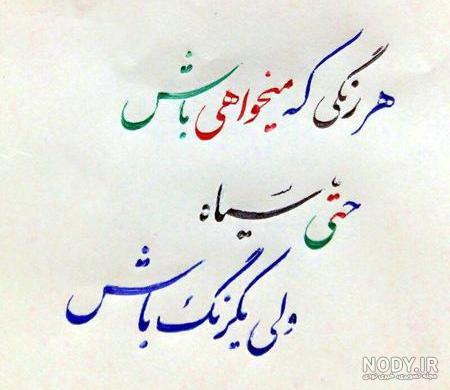 هر رنگی که میخواهی باش
حتّی سیاه
ولی یکرنگ باش
NODY.IR